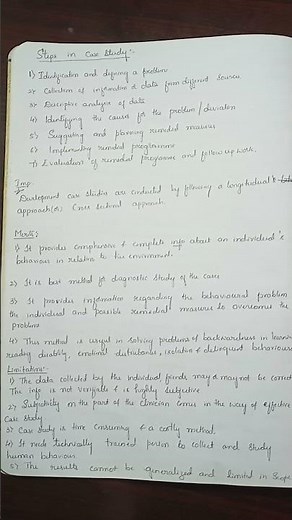 Steps in Case Study:-
1) Identification and defining a problem
2) Collection of information & data from different sources
3) Descriptive analysis of data
4) Identifying the cause for the problem/deviation
5) Suggesting and planning remedial measures
6) Implementing remedial programme
7) Evaluation of remedial programme and follow up work.
Imp:
Development case studies are conducted by following a longitudinal
approach (or) Cross Sectional approach.
Merits:
1) It provides comprehensive & complete info about an individual's
behaviour in relation to his environment.
2) It is best method for diagnostic study of the cases
3) It provides information regarding the behavioural problem
the individual and possible remedial measures to overcome the
problem
4) This method is useful in solving problems of backwardness in learning
reading disability, emotional disturbance, isolation & delinquent behaviours
Limitations:-
1) The data collected by the individual may or may not be correct
The info is not verifiable & is highly subjective
2) Subjectivity on the part of the clinician comes in the way of effective
case study
3) Case study is time consuming & a costly method.
4) It needs technically trained person to collect and study
human behaviour
5) The results cannot be generalized and limited in scope